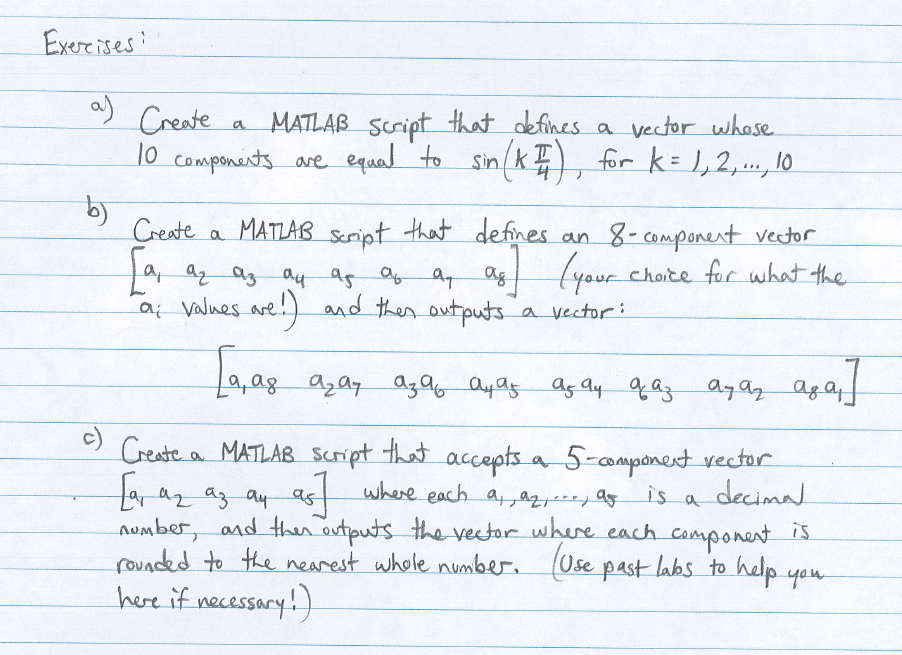 Exercises:
a) Create a MATLAB script that defines a vector whose
10 components are equal to sin(k π/4), for k = 1, 2, ..., 10
b) Create a MATLAB script that defines an 8-component vector
[a₁ a₂ a₃ a₄ a₅ a₆ a₇ a₈] (your choice for what the
aᵢ values are!) and then outputs a vector:
[a₁a₈ a₂a₇ a₃a₆ a₄a₅ a₅a₄ a₆a₃ a₇a₂ a₈a₁]
c) Create a MATLAB script that accepts a 5-component vector
[a₁ a₂ a₃ a₄ a₅] where each a₁, a₂, ..., a₅ is a decimal
number, and then outputs the vector where each component is
rounded to the nearest whole number. (Use past labs to help you
here if necessary!)